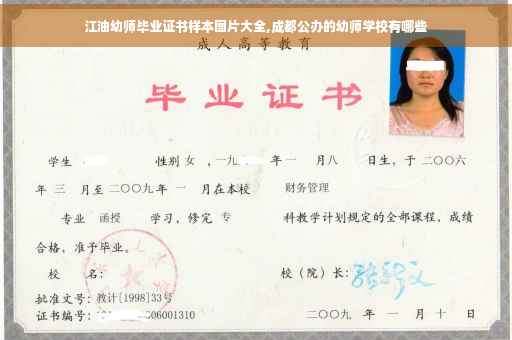 江油幼师毕业证书样本图片大全,成都公办的幼师学校有哪些
成人高等教育
毕业证书
学生 性别 女 ,一九 年一 月八 日生,于二〇〇六
年 三 月至二〇〇九年 一 月在本校 财务管理
专业 函授 学习,修完 专 科教学计划规定的全部课程,成绩
合格,准予毕业。
校 名: 校(院)长:
批准文号:教计[1998]33号
证书编号: 06001310 二〇〇九 年 一 月 十 日